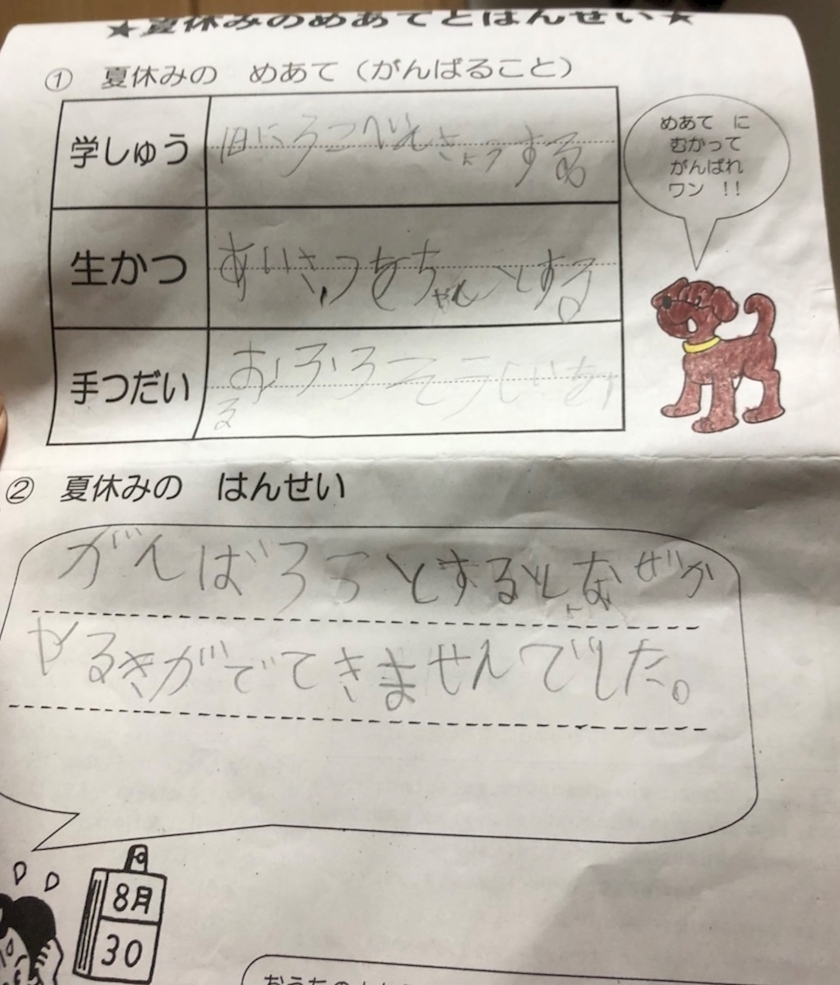 ★夏休みのめあてとはんせい★
① 夏休みの めあて（がんばること）
学しゅう 1日に こべんきょうする
生かつ あいさつをちゃんとする
手つだい おふろそうじをする
めあて に
むかって
がんばれ
ワン !!
② 夏休みの はんせい
がんばろうとするとなぜか
やるきがでてきませんでした。
8月
30
おうちの